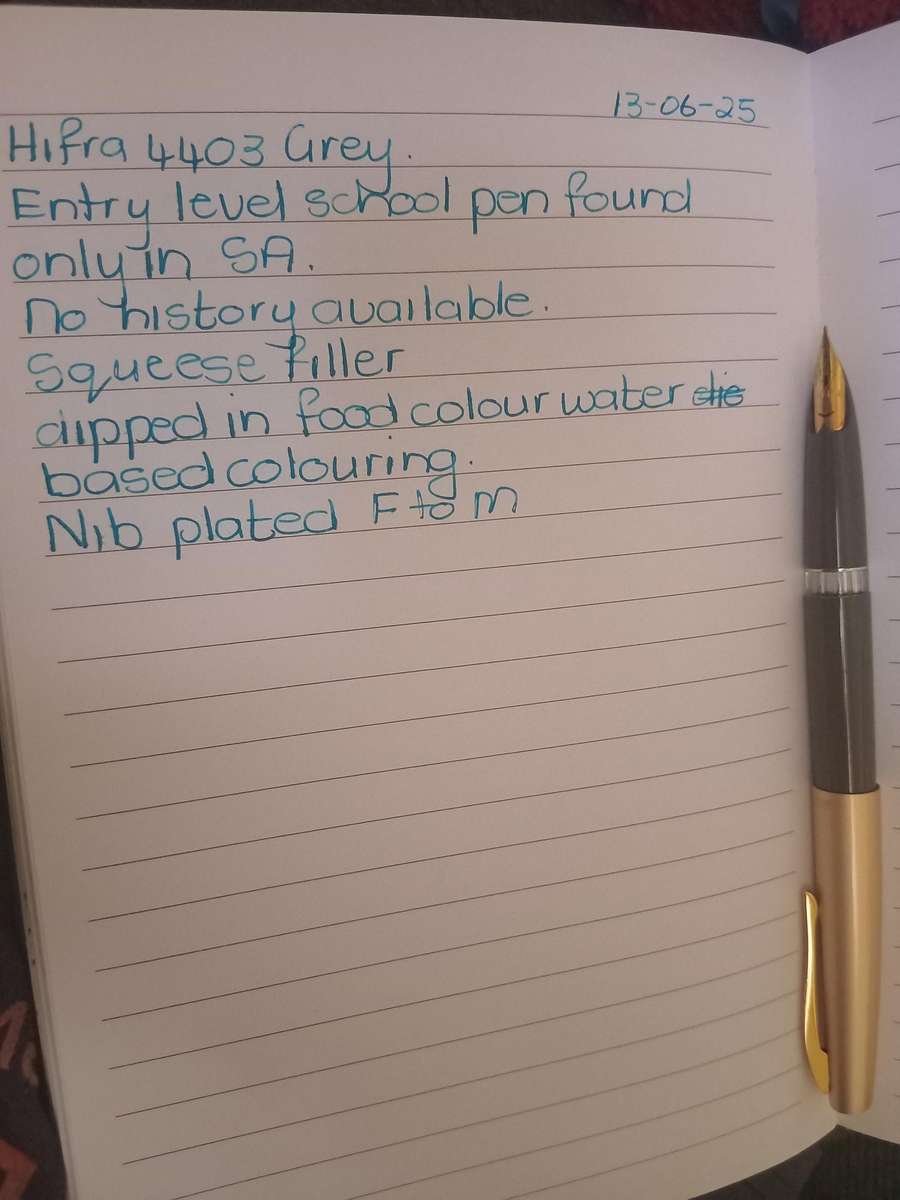 13-06-25
Hifra 4403 Grey.
Entry level school pen found
only in SA.
No history available.
Squeese filler
dipped in food colour water die
based colouring.
Nib plated F to M